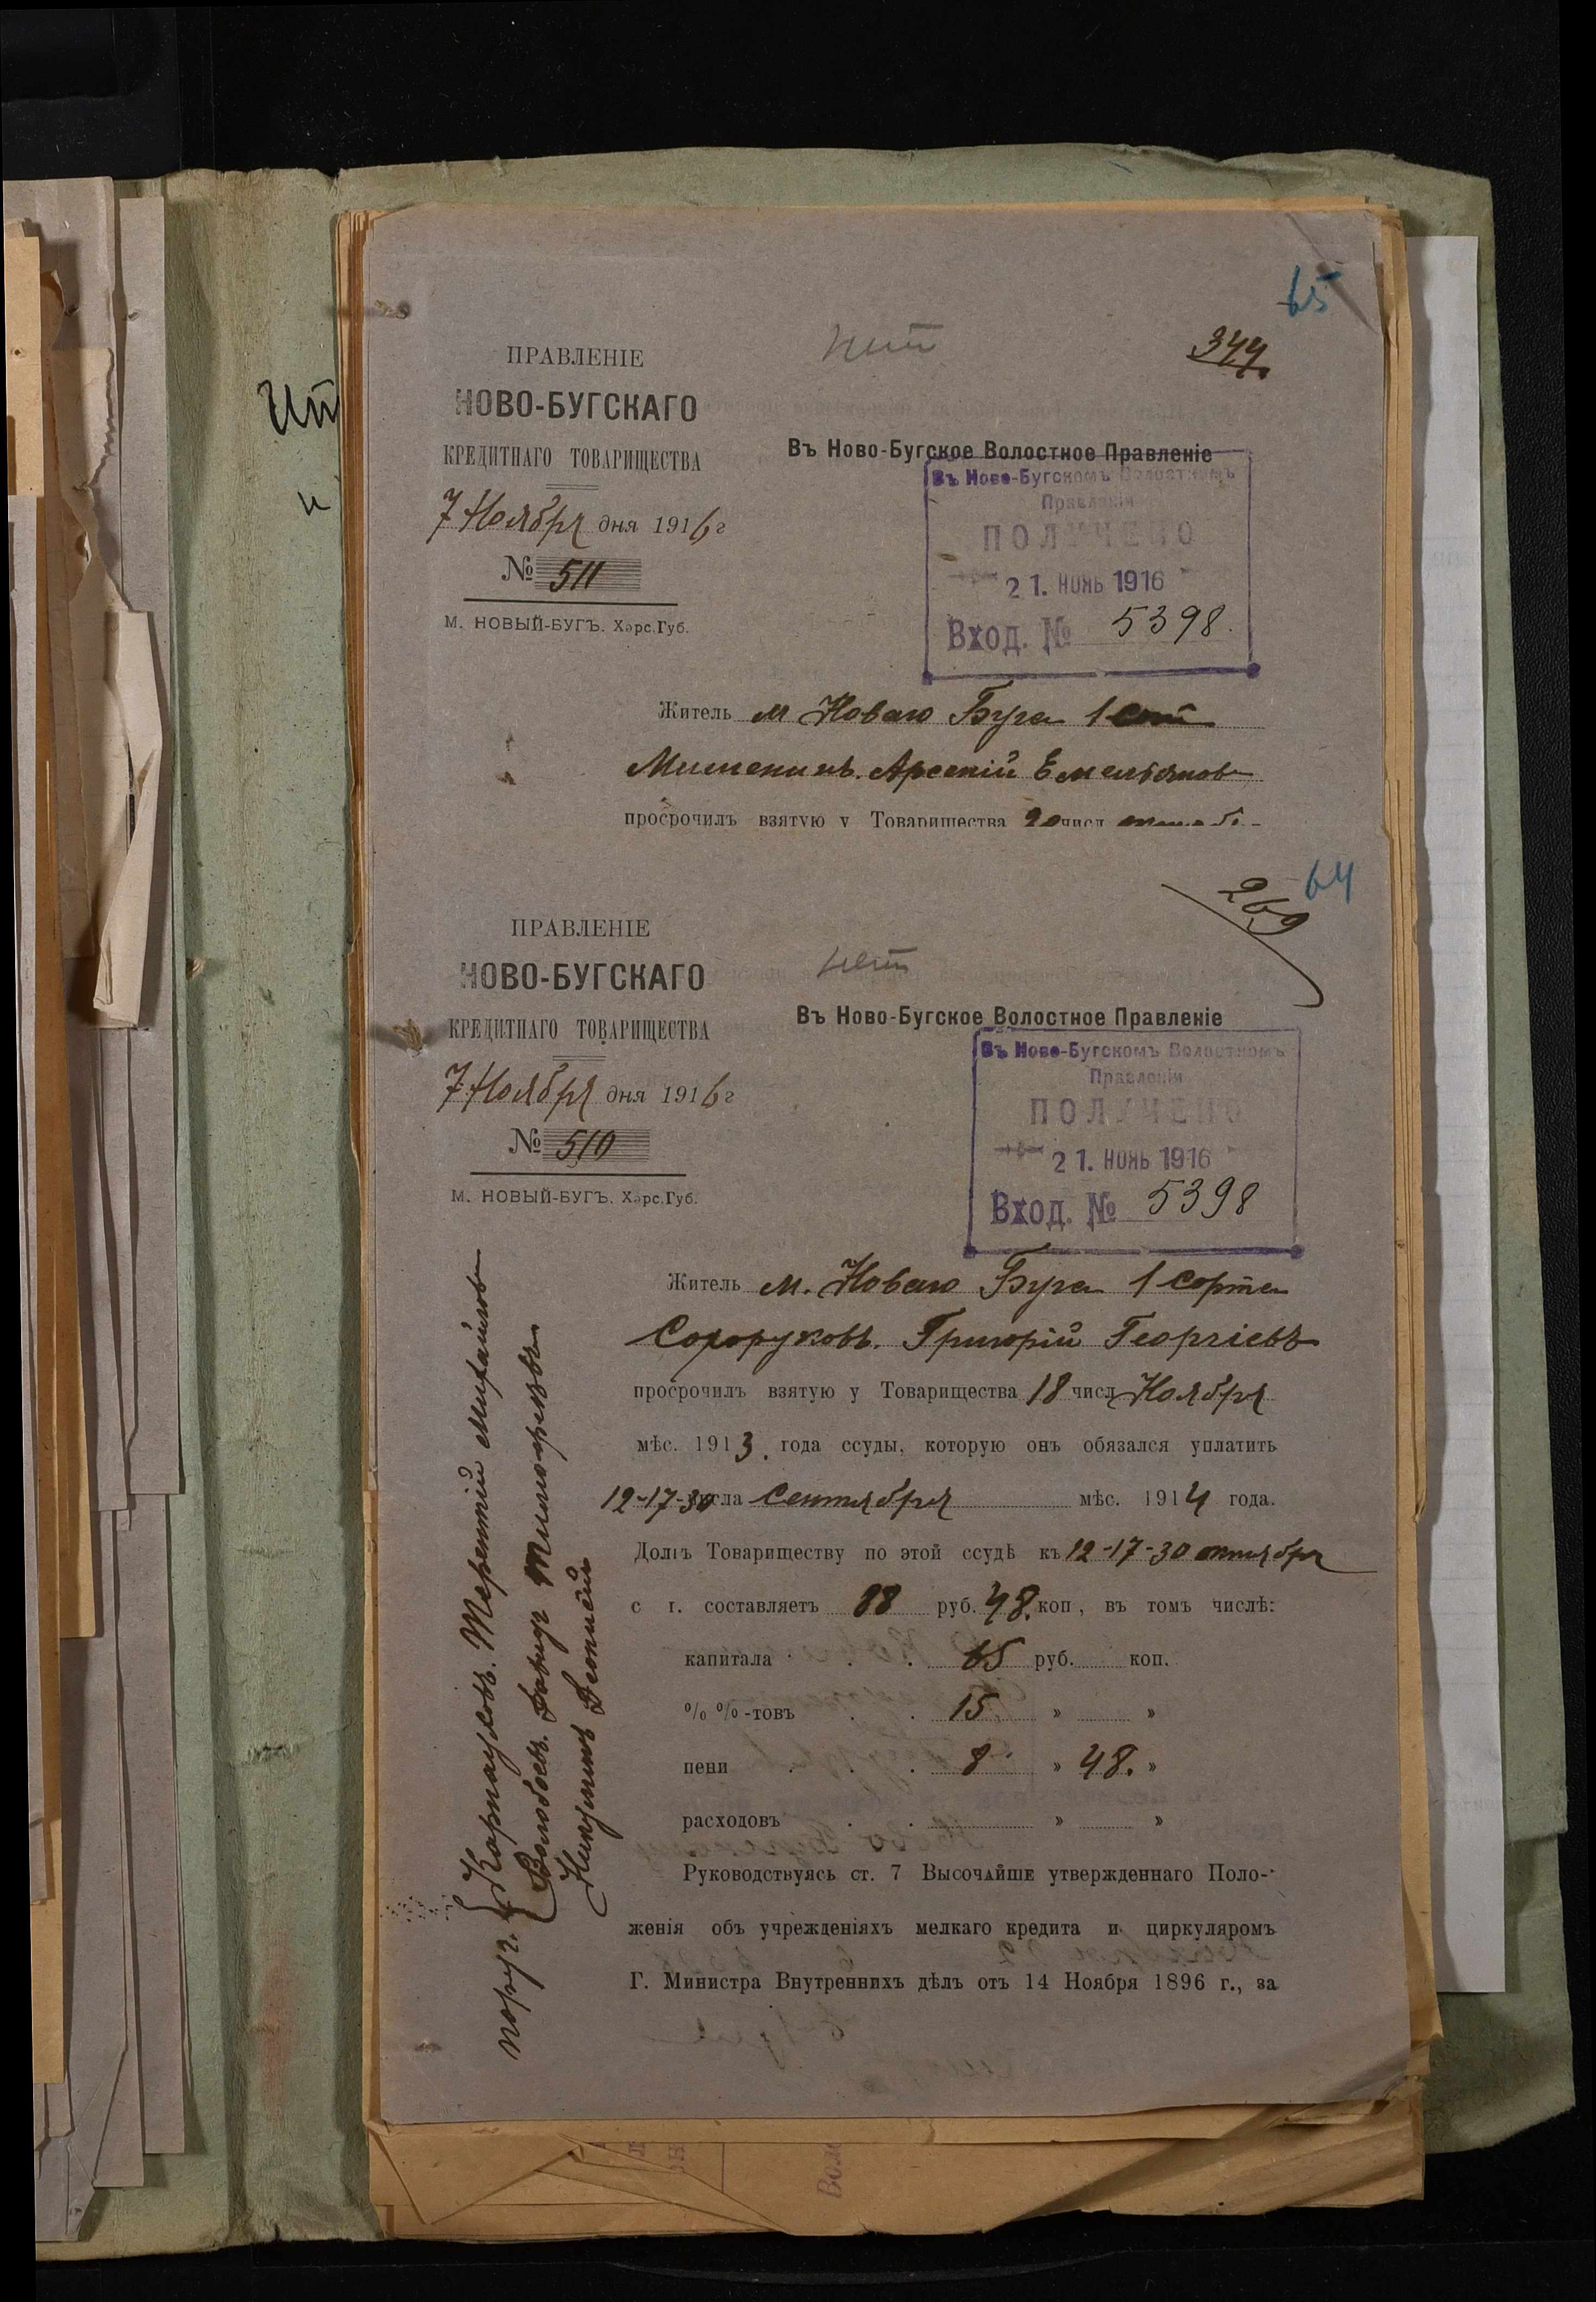 65
нѣтъ
344.
ПРАВЛЕНІЕ
НОВО-БУГСКАГО
КРЕДИТНАГО ТОВАРИЩЕСТВА
7 Ноября дня 1916 г
№ 511
М. НОВЫЙ-БУГЪ. Херс.Губ.
Въ Ново-Бугское Волостное Правленіе
Въ Ново-Бугскомъ Волостномъ
Правленіи
ПОЛУЧЕНО
21. НОЯБ 1916
Вход. № 5398.
Житель м Новаго Буга 1
Арсеній Емельянов
просрочилъ взятую у Товарищества 20 числ
64
269
нѣтъ
ПРАВЛЕНІЕ
НОВО-БУГСКАГО
КРЕДИТНАГО ТОВАРИЩЕСТВА
7 Ноября дня 1916 г
№ 510
М. НОВЫЙ-БУГЪ. Херс.Губ.
Въ Ново-Бугское Волостное Правленіе
Въ Ново-Бугскомъ Волостномъ
Правленіи
ПОЛУЧЕНО
21. НОЯБ 1916
Вход. № 5398
Житель м. Новаго Буга 1 сорта
Сохоруковъ. Григорій Георгіевъ
просрочилъ взятую у Товарищества 18 числ Ноября
мѣс. 1913. года ссуды, которую онъ обязался уплатить
12-17-30 числа Сентября мѣс. 1914 года.
Долгъ Товариществу по этой ссудѣ къ 12-17-30 октября
с г. составляетъ 88 руб. 48. коп, въ томъ числѣ:
капитала . . 65 руб. коп.
% %-товъ . . 15 » »
пени . . 8 » 48. »
расходовъ . . » »
Руководствуясь ст. 7 Высочайше утвержденнаго Поло-
женія объ учрежденіяхъ мелкаго кредита и циркуляромъ
Г. Министра Внутреннихъ дѣлъ отъ 14 Ноября 1896 г., за
поруч.
Карнауховъ. Терентій Михайлов
Волобоевъ. Давид Тимофеевъ
Никулинъ Леонтій